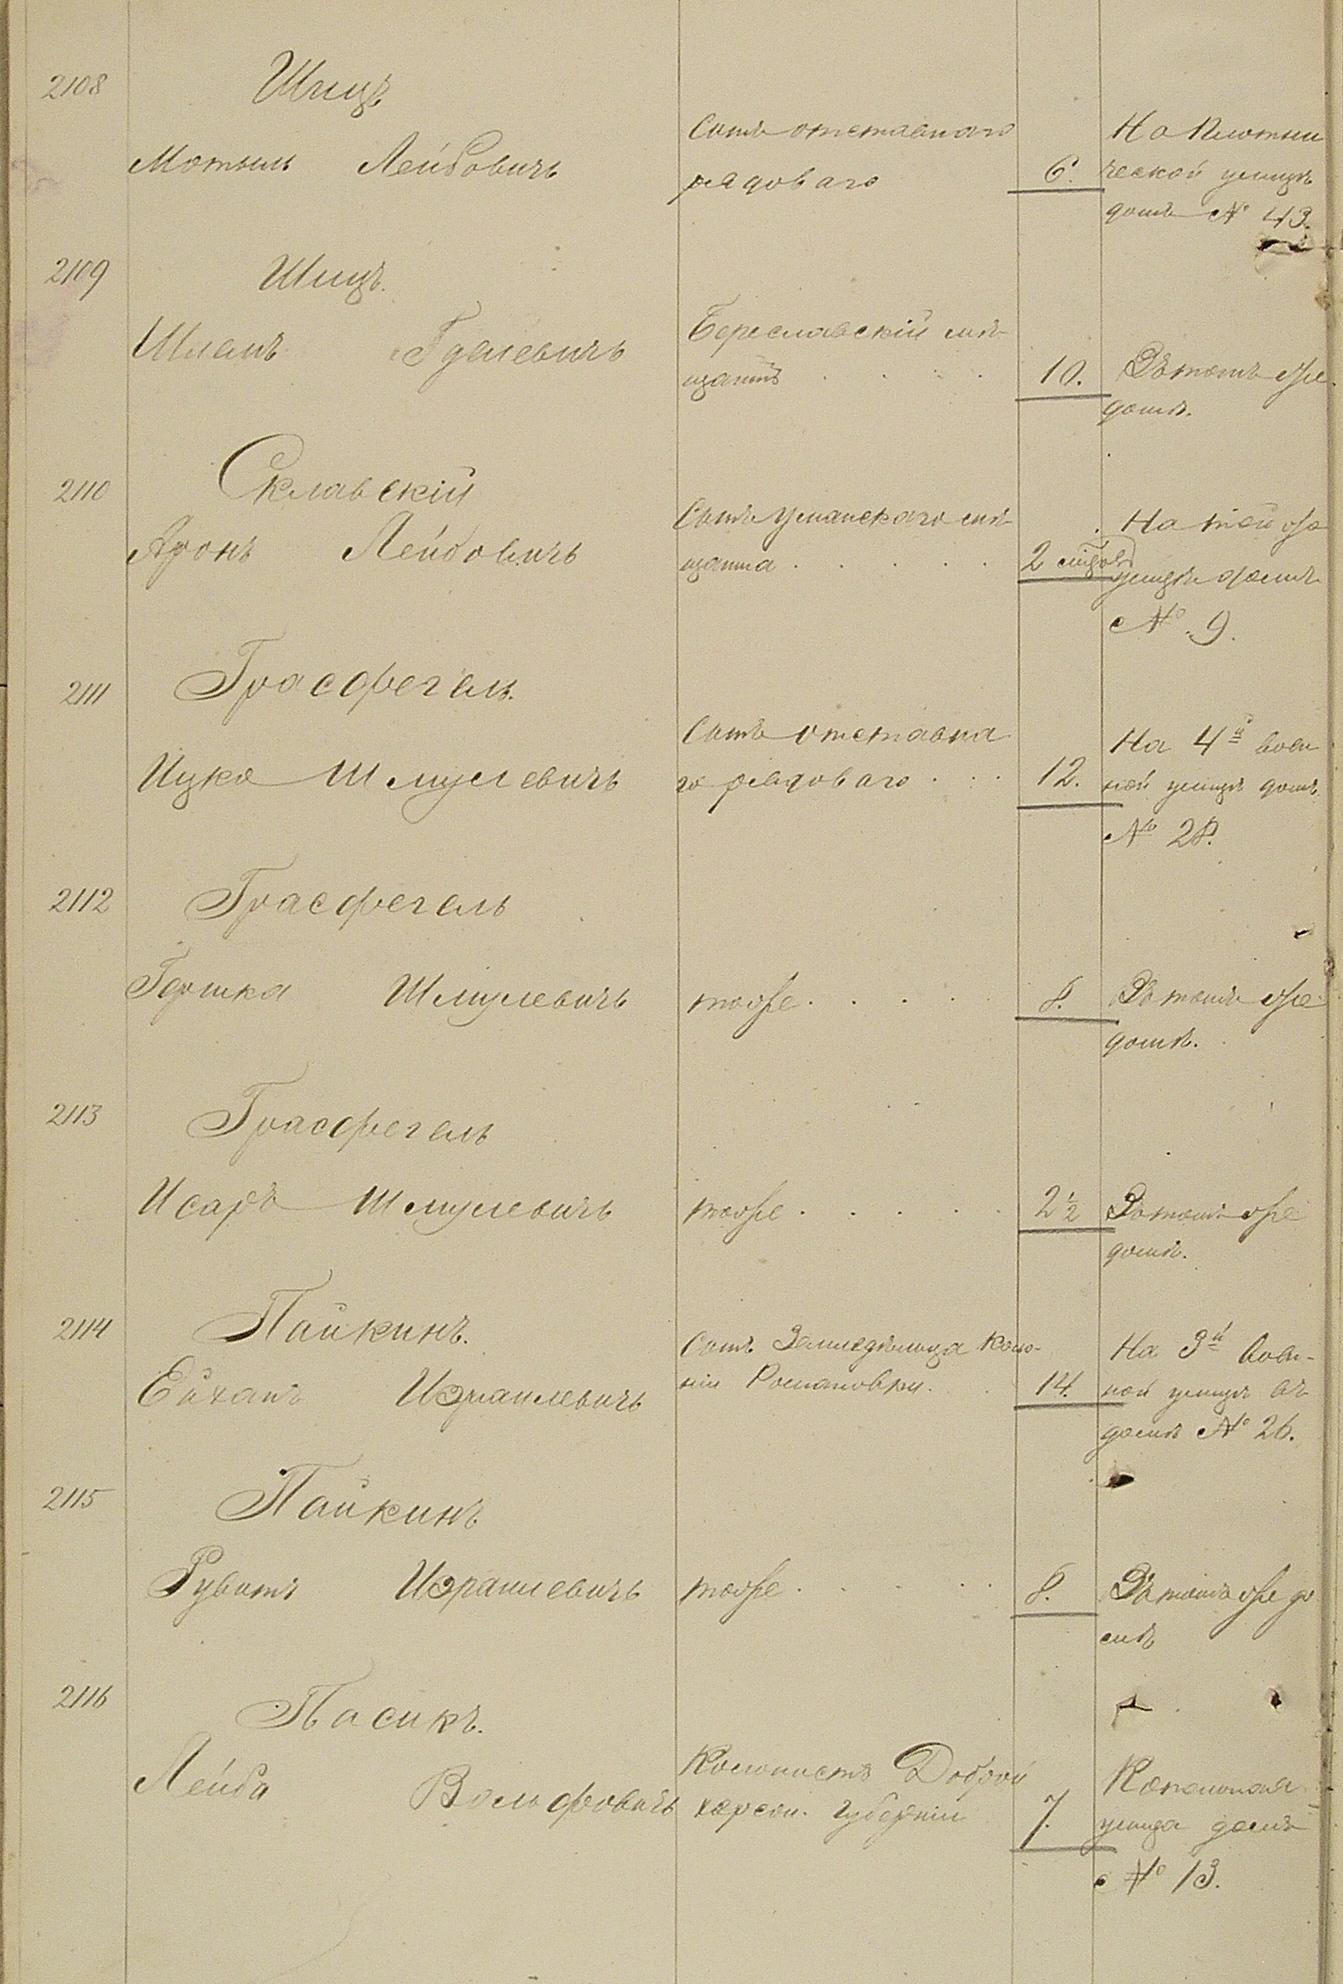 2108
Шицъ
Мотыль Лейбовичъ
Сынъ отставнаго
рядоваго
6.
На
ческой улицѣ
домъ № 43.
2109
Шицъ.
Шлемъ Гделевичъ
Береславскій мѣ-
щанинъ . . . .
10.
Въ томъ же
домѣ.
2110
Склавскій
Аронъ Лейбовичъ
Сынъ Уманскаго мѣ-
щанина . . . . .
2
На той же
улицѣ домъ
№ 9.
2111
Грасфегель.
Ицко Шмулевичъ
Сынъ отставна
го рядоваго . . .
12.
На 4й воен
ной улицѣ домъ
№ 28.
2112
Грасфегель
Гершко Шмулевичъ
тоже . . . . .
8.
Въ томъ же
домѣ.
2113
Грасфегель
Исаръ Шмулевичъ
тоже . . . . .
2 1/2
Въ томъ же
домѣ.
2114
Пайкинъ.
Ейханъ Израилевичъ
Сынъ Земледѣльца Коло-
ніи Романовки.
14.
На 3й Воен-
ной улицѣ въ
домѣ № 26.
2115
Пайкинъ
Рувинъ Израилевичъ
тоже . . . . .
8.
Въ томъ же до
мѣ
2116
Пасикъ.
Лейба Вольфовичъ
Колонистъ Доброй
херсон. губерніи
7.
улица домъ
№ 13.